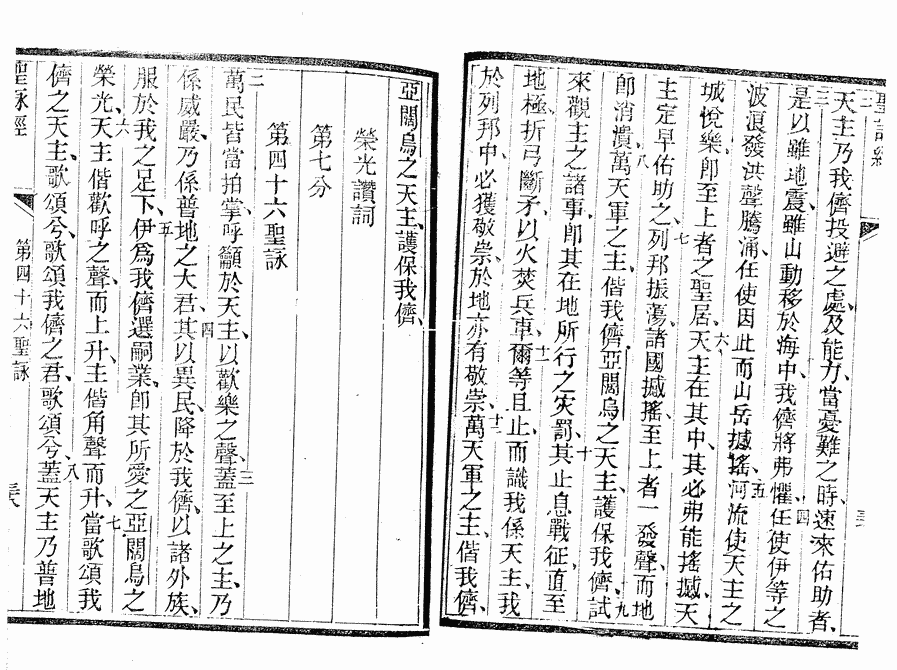 聖詠經
二
天主乃我儕投避之處、及能力、當憂難之時、速來佑助者、
三
是以雖地震、雖山動移於海中、我儕將弗懼、四任使伊等之
波浪發洪聲騰涌、任使因此而山岳撼搖、五河流使天主之
城悅樂、卽至上者之聖居、六天主在其中、其必弗能搖撼、天
主定早佑助之、七列邦振蕩、諸國撼搖、至上者一發聲、而地
卽消潰、八萬天軍之主、偕我儕、亞闊烏之天主、護保我儕、九試
來觀主之諸事、卽其在地所行之災罰、十其止息戰征、直至
地極、折弓斷矛、以火焚兵車、十一爾等且止、而識我係天主、我
於列邦中、必獲敬崇、於地亦有敬崇、十二萬天軍之主、偕我儕、
亞闊烏之天主、護保我儕、
榮光讚詞
第七分
第四十六聖詠
二
萬民皆當拍掌、呼籲於天主、以歡樂之聲、三蓋至上之主、乃
係威嚴、乃係普地之大君、四其以異民降於我儕、以諸外族、
服於我之足下、五伊爲我儕選嗣業、卽其所愛之亞闊烏之
榮光、六天主偕歡呼之聲而上升、主偕角聲而升、七當歌頌我
儕之天主、歌頌兮、歌頌我儕之君、歌頌兮、八蓋天主乃普地
聖詠經
第四十六聖詠
三八